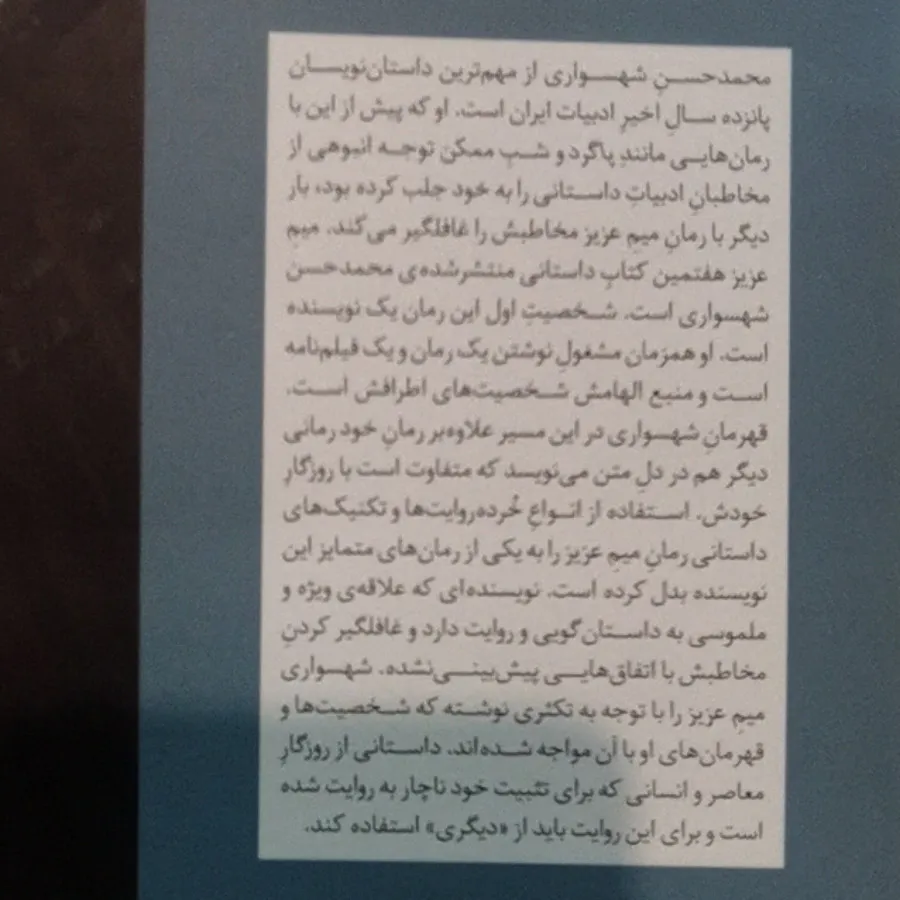 محمدحسنِ شهسواری از مهم‌ترین داستان‌نویسان
پانزده سالِ اخیرِ ادبیات ایران است. او که پیش از این با
رمان‌هایی مانندِ پاگرد و شبِ ممکن توجه انبوهی از
مخاطبانِ ادبیاتِ داستانی را به خود جلب کرده بود، بار
دیگر با رمانِ میمِ عزیز مخاطبش را غافلگیر می‌کند. میمِ
عزیز هفتمین کتابِ داستانی منتشرشده‌ی محمدحسن
شهسواری است. شخصیتِ اول این رمان یک نویسنده
است. او همزمان مشغولِ نوشتن یک رمان و یک فیلم‌نامه
است و منبع الهامش شخصیت‌های اطرافش است.
قهرمانِ شهسواری در این مسیر علاوه‌بر رمانِ خود رمانی
دیگر هم در دلِ متن می‌نویسد که متفاوت است با روزگارِ
خودش. استفاده از انواعِ خُرده‌روایت‌ها و تکنیک‌های
داستانی رمانِ میمِ عزیز را به یکی از رمان‌های متمایز این
نویسنده بدل کرده است. نویسنده‌ای که علاقه‌ی ویژه و
ملموسی به داستان‌گویی و روایت دارد و غافلگیر کردنِ
مخاطبش با اتفاق‌هایی پیش‌بینی‌نشده. شهسواری
میمِ عزیز را با توجه به تکثری نوشته که شخصیت‌ها و
قهرمان‌های او با آن مواجه شده‌اند. داستانی از روزگارِ
معاصر و انسانی که برای تثبیت خود ناچار به روایت شده
است و برای این روایت باید از «دیگری» استفاده کند.